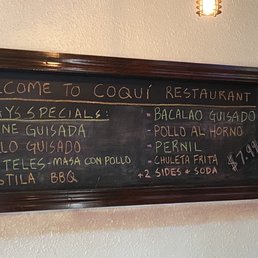 LCOME TO COQUÍ RESTAURANT
AY'S SPECIALS:
NE GUISADA
LLO GUISADO
TELES - MASA CON POLLO
TILA BBQ
- BACALAO GUISADO
- POLLO AL HORNO
- PERNIL
- CHULETA FRITA
+2 SIDES + SODA
$7.99